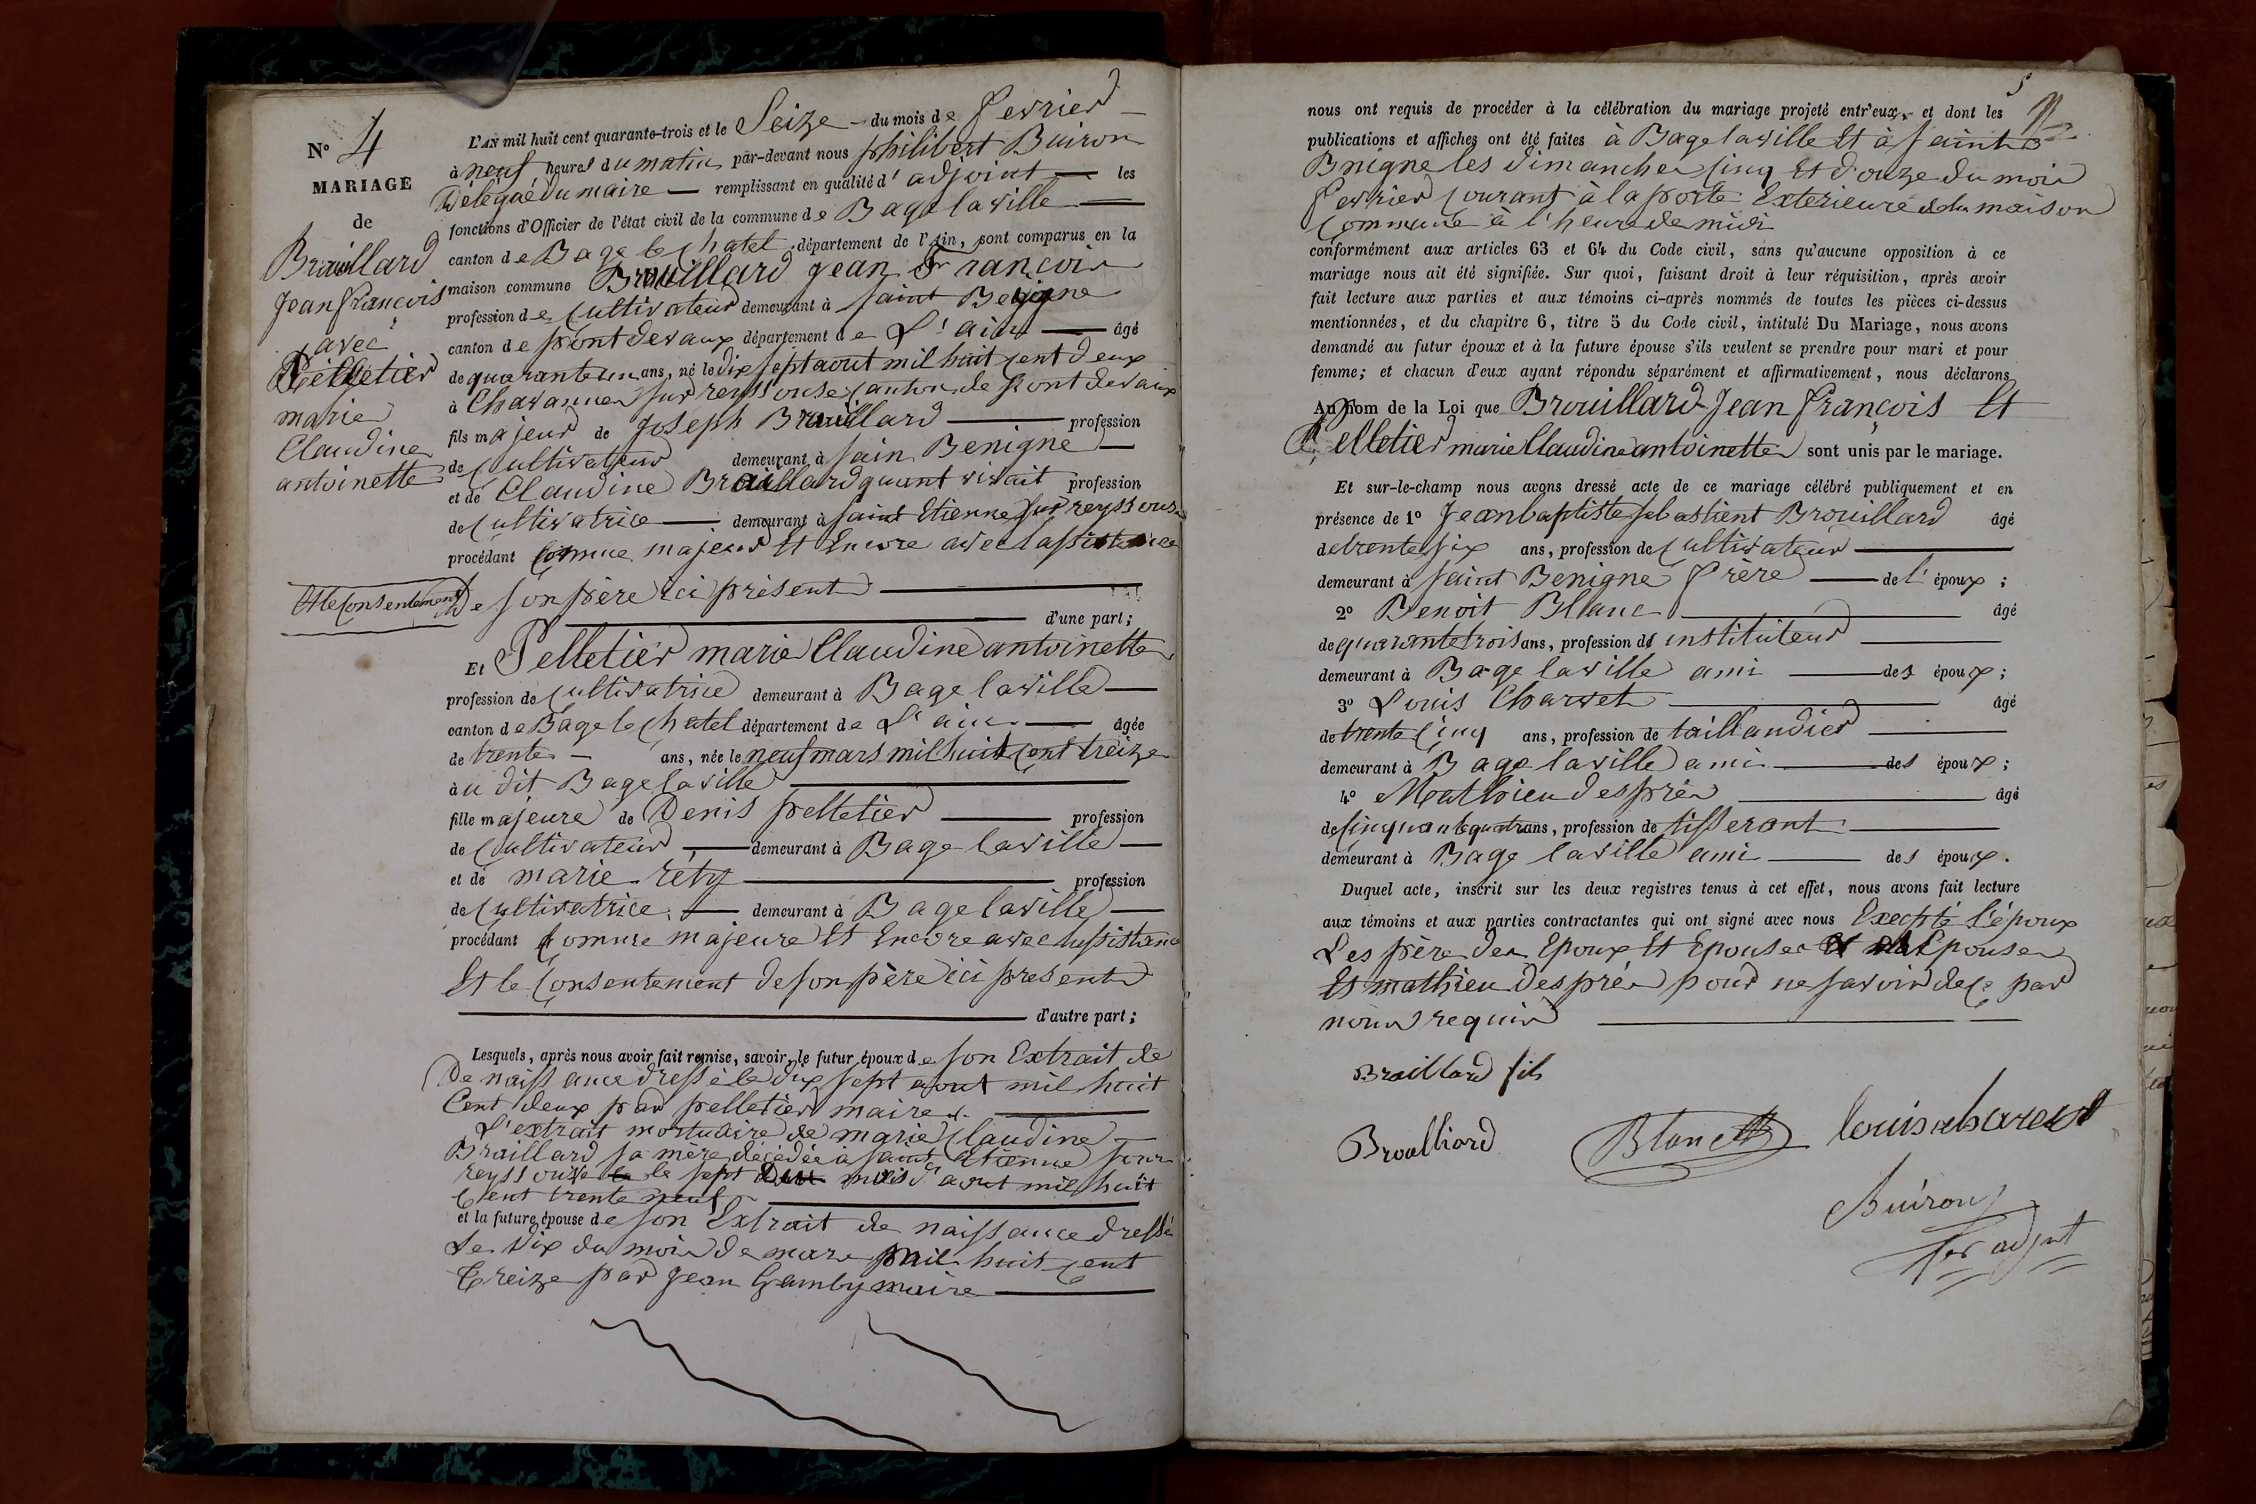 N° 4
MARIAGE
de
Brouillard
Jean françois
avec
Pelletier
marie
Claudine
antoinette
L'AN mil huit cent quarante-trois et le Seize du mois de fevrier
à neuf heures du matin par-devant nous philibert Buiron
Délégué du maire remplissant en qualité d'adjoint les
fonctions d'Officier de l'état civil de la commune de Bage laville
canton de Bage le Chatel département de l'Ain, sont comparus en la
maison commune Brouillard jean François
profession de Cultivateur demeurant à saint Benigne
canton de pont devaux département de L'ain âgé
de quarante un ans, né le dix sept aout mil huit cent deux
à Chavannes sur reyssouse canton de Pont devaux
fils majeur de Joseph Brouillard profession
de Cultivateur demeurant à sain Benigne
et de Claudine Braillard quant vivait profession
de Cultivatrice demeurant à saint Etienne sur reyssouse
procédant comme majeur Et Encore avec lassistance
Et le Consentement
de son père ici présent
d'une part;
Et Pelletier marie Claudine antoinette
profession de Cultivatrice demeurant à Bage laville
canton de Bage le Chatel département de L'ain âgée
de trente ans, née le neuf mars mil huit cent treize
au dit Bage laville
fille majeure de Denis pelletier profession
de Cultivateur demeurant à Bage laville
et de marie rety profession
de Cultivatrice demeurant à Bage laville
procédant Comme majeure Et Encore avec lassistance
Et le Consentement de son père ici present
d'autre part;
Lesquels, après nous avoir fait remise, savoir, le futur époux de son Extrait de
De naissance dressé le dix sept aout mil huit
Cent deux par pelletier maire
L'extrait mortuaire de marie Claudine
Braillard sa mère décédée à saint Etienne sur
reyssouse le sept mois d'aout mil huit
Cent trente neuf
et la future épouse de son Extrait de naissance dressé
Le dix du mois de mars mil huit cent
treize par jean Gamby maire
5
nous ont requis de procéder à la célébration du mariage projeté entr'eux, et dont les
publications et affiches ont été faites à Bage laville Et à saint
Bnigne les dimanches cinq Et douze du mois
fevrier courant à la porte Exterieure de la maison
Commune à l'heure de midi
conformément aux articles 63 et 64 du Code civil, sans qu'aucune opposition à ce
mariage nous ait été signifiée. Sur quoi, faisant droit à leur réquisition, après avoir
fait lecture aux parties et aux témoins ci-après nommés de toutes les pièces ci-dessus
mentionnées, et du chapitre 6, titre 5 du Code civil, intitulé Du Mariage, nous avons
demandé au futur époux et à la future épouse s'ils veulent se prendre pour mari et pour
femme; et chacun d'eux ayant répondu séparément et affirmativement, nous déclarons
Au nom de la Loi que Brouillard Jean françois Et
Pelletier marie Claudine antoinette sont unis par le mariage.
Et sur-le-champ nous avons dressé acte de ce mariage célébré publiquement et en
présence de 1° Jean baptiste sebastient Brouillard âgé
de trente six ans, profession de Cultivateur
demeurant à saint Benigne frère de l'époux;
2° Benoit Blanc âgé
de quarante trois ans, profession d'instituteur
demeurant à Bage laville ami des époux;
3° Louis Charvet âgé
de trente cinq ans, profession de taillandier
demeurant à Bage laville ami des époux;
4° Mathieu després âgé
de cinquante quatre ans, profession de tisserant
demeurant à Bage laville ami des époux.
Duquel acte, inscrit sur les deux registres tenus à cet effet, nous avons fait lecture
aux témoins et aux parties contractantes qui ont signé avec nous Execpté l'époux
Les père des Epoux Et Epouse Et Epouse
Et mathieu després pour ne savoir de ce par
nous requis
Braillard fils
Broulliard
Blanc
louis charvet
Buiron
1er adjnt